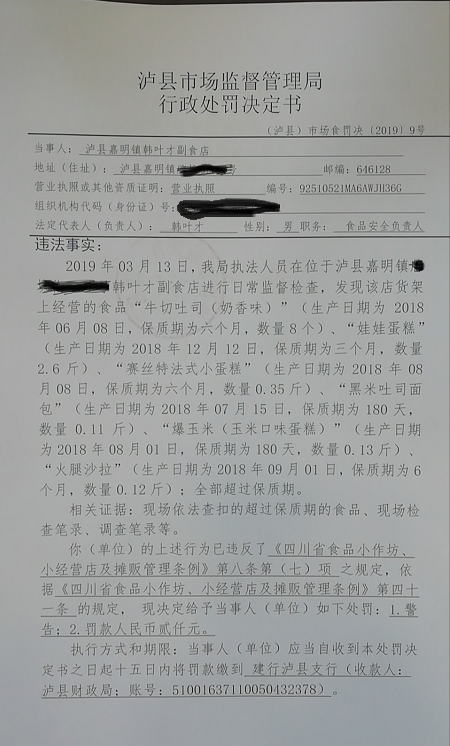 泸县市场监督管理局
行政处罚决定书
（泸县）市场食罚决〔2019〕9号
当事人： 泸县嘉明镇韩叶才副食店
地址（住址）： 泸县嘉明镇 邮编：646128
营业执照或其他资质证明：营业执照 编号：92510521MA6AWJH36G
组织机构代码（身份证）号：
法定代表人（负责人）： 韩叶才 性别： 男 职务： 食品安全负责人
违法事实：
2019 年 03 月 13 日，我局执法人员在位于泸县嘉明镇
韩叶才副食店进行日常监督检查，发现该店货架
上经营的食品“牛切吐司（奶香味）”（生产日期为 2018
年 06 月 08 日，保质期为六个月，数量 8 个）、“娃娃蛋糕”
（生产日期为 2018 年 12 月 12 日，保质期为三个月，数量
2.6 斤）、“赛丝特法式小蛋糕”（生产日期为 2018 年 08
月 08 日，保质期为六个月，数量 0.35 斤）、“黑米吐司面
包”（生产日期为 2018 年 07 月 15 日，保质期为 180 天，
数量 0.11 斤）、“爆玉米（玉米口味蛋糕）”（生产日期
为 2018 年 08 月 01 日，保质期为 180 天，数量 0.13 斤）、
“火腿沙拉”（生产日期为 2018 年 09 月 01 日，保质期为 6
个月，数量 0.12 斤）；全部超过保质期。
相关证据：现场依法查扣的超过保质期的食品、现场检
查笔录、调查笔录等。
你（单位）的上述行为已违反了《四川省食品小作坊、
小经营店及摊贩管理条例》第八条第（七）项 之规定，依
据《四川省食品小作坊、小经营店及摊贩管理条例》第四十
一条 的规定， 现决定给予当事人（单位）如下处罚：1.警
告；2.罚款人民币贰仟元。
执行方式和期限：当事人（单位）应当自收到本处罚决
定书之日起十五日内将罚款缴到 建行泸县支行（收款人：
泸县财政局；账号：51001637110050432378）。